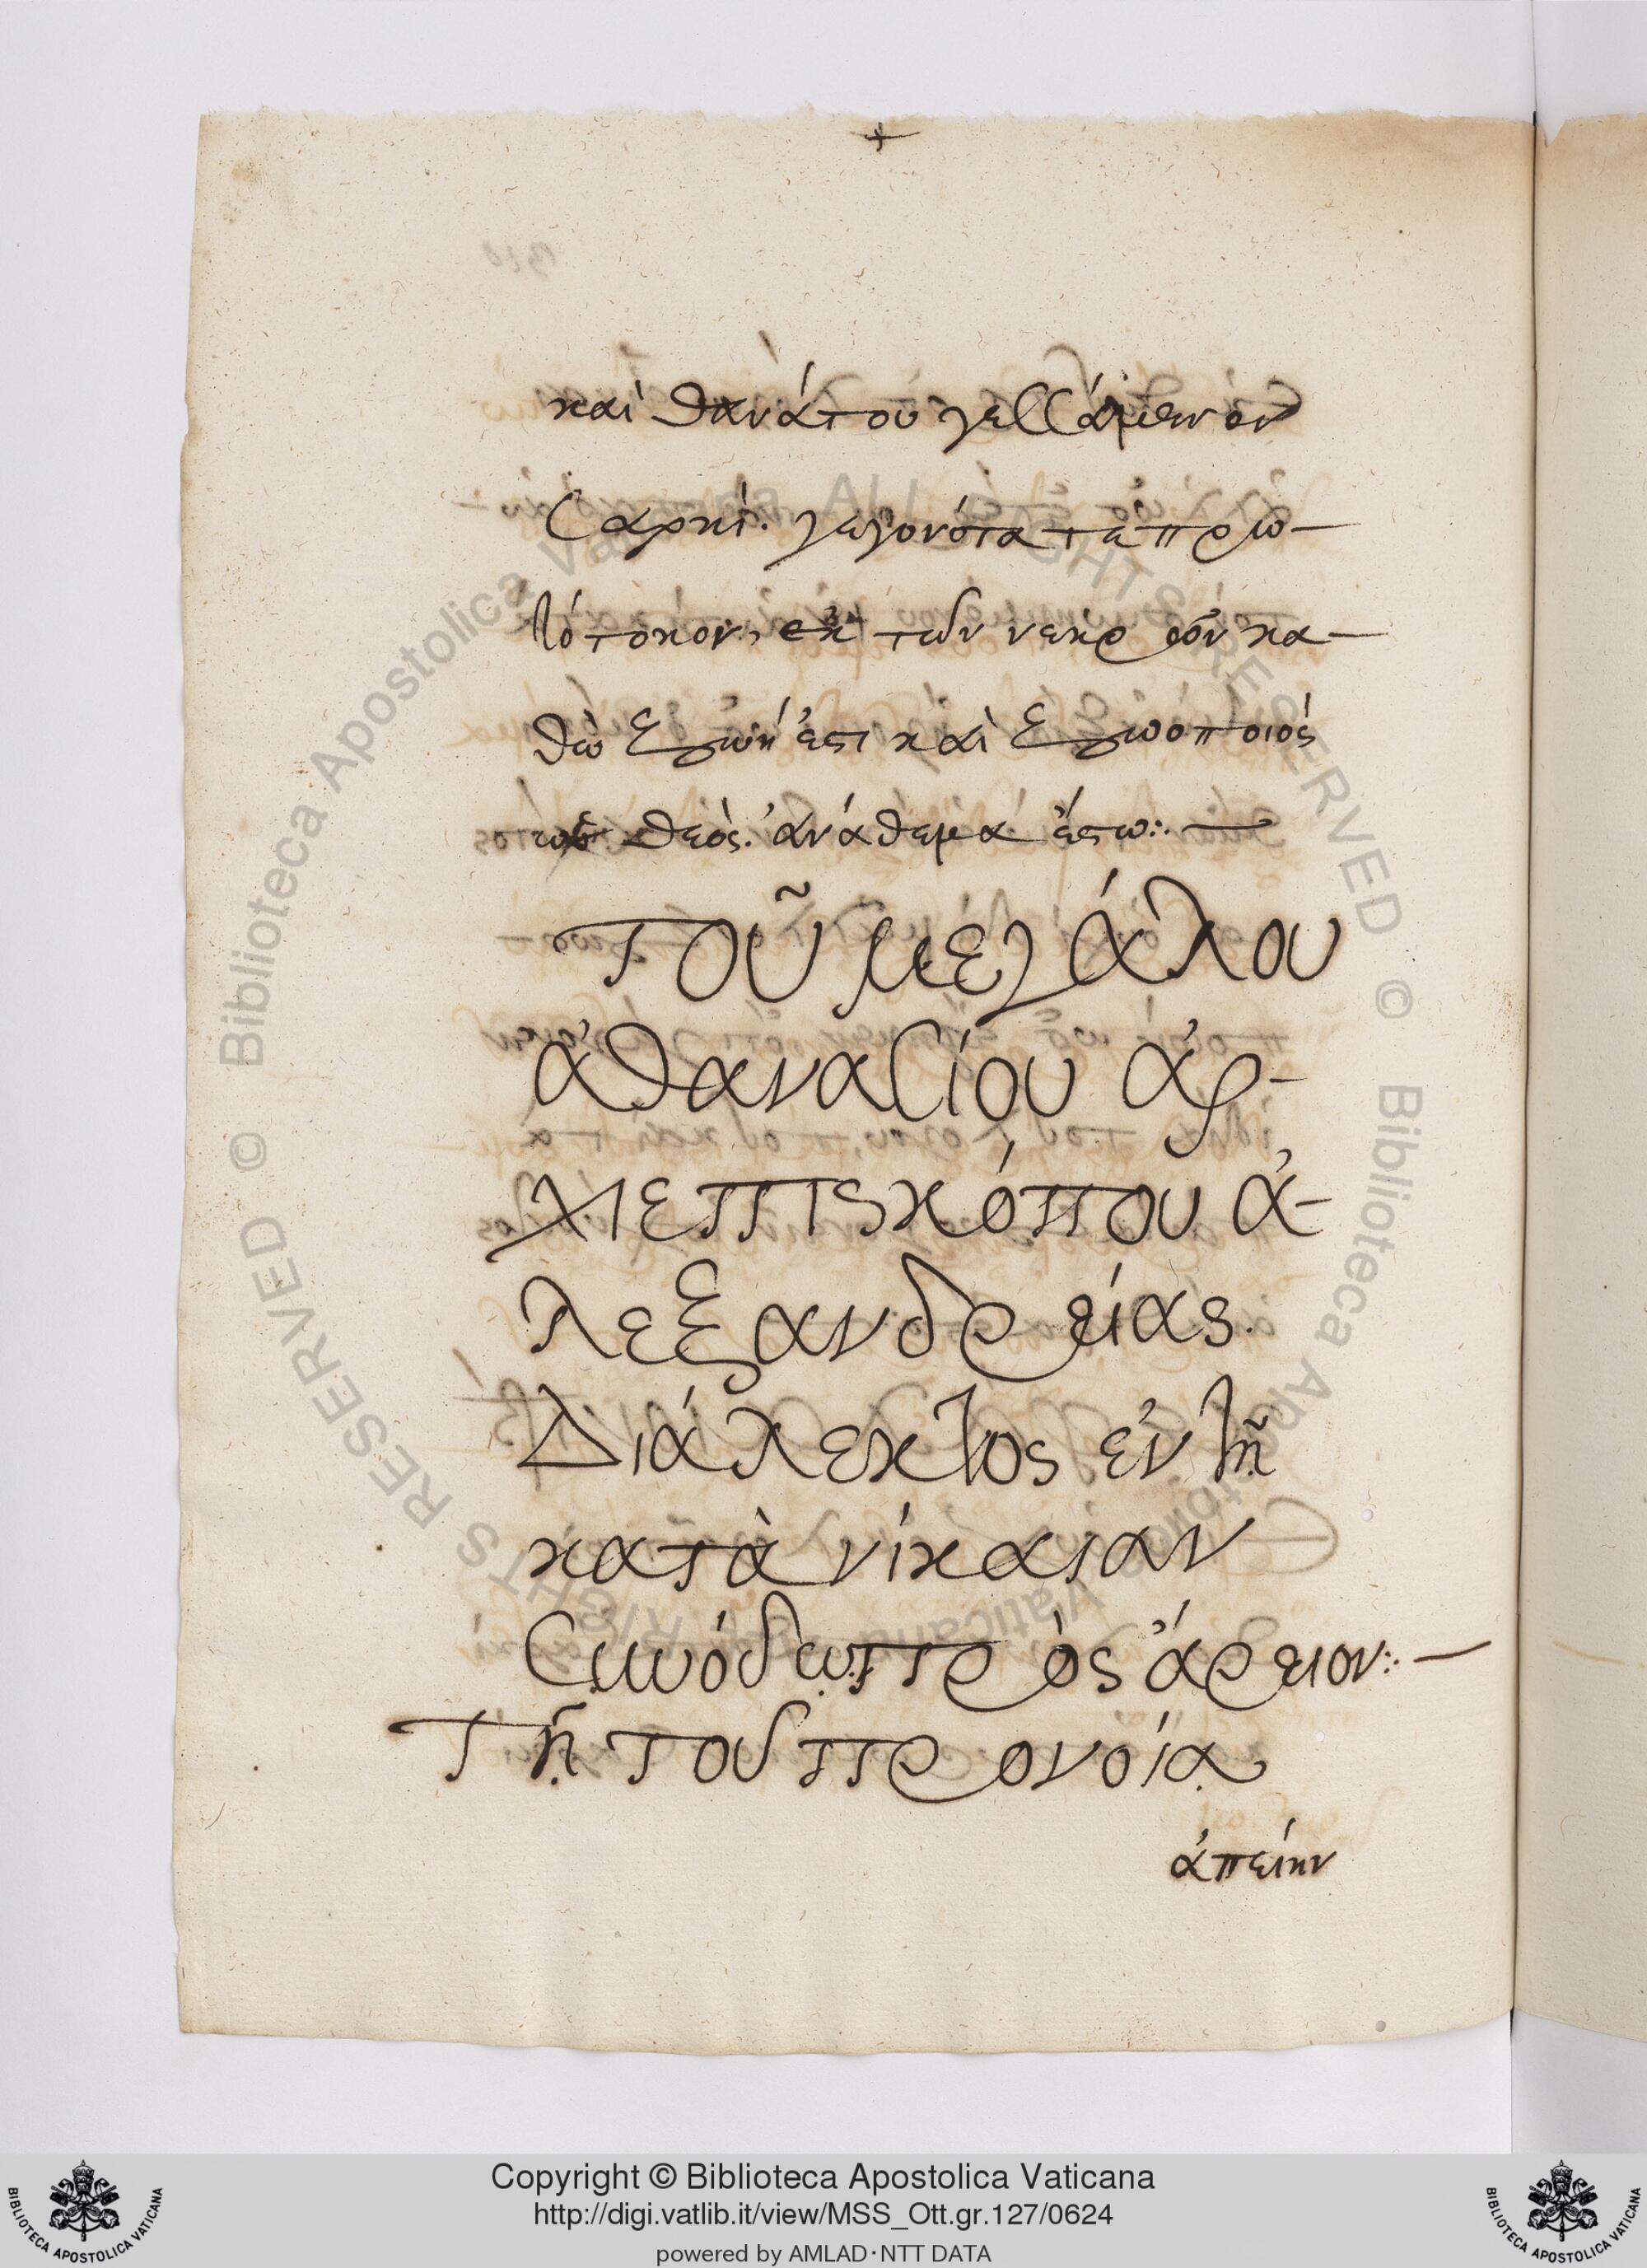 +
καὶ θανάτου γευσάμενον
σαρκί. γεγονότα τε πρω-
τότοκον, ἐκ τῶν νεκρῶν κα-
θὼ ζωή ἐστι καὶ ζωοποιὸς
ὡς θεὸς. ἀνάθεμα ἔστω:. —
τοῦ μεγάλου
ἀθανασίου ἀρ-
χιεπισκόπου ἀ-
λεξανδρείας.
Διάλεκτος ἐν τῇ
κατὰ νίκαιαν
συνόδῳ πρὸς ἄρειον:. —
Τῇ τοῦ προνοίᾳ
ἀπείην
© Biblioteca Apostolica Vaticana ALL RIGHTS RESERVED © Biblioteca Apostolica Vaticana ALL RIGHTS RESERVED
Copyright © Biblioteca Apostolica Vaticana
http://digi.vatlib.it/view/MSS_Ott.gr.127/0624
powered by AMLAD·NTT DATA
BIBLIOTECA APOSTOLICA VATICANA
BIBLIOTECA APOSTOLICA VATICANA